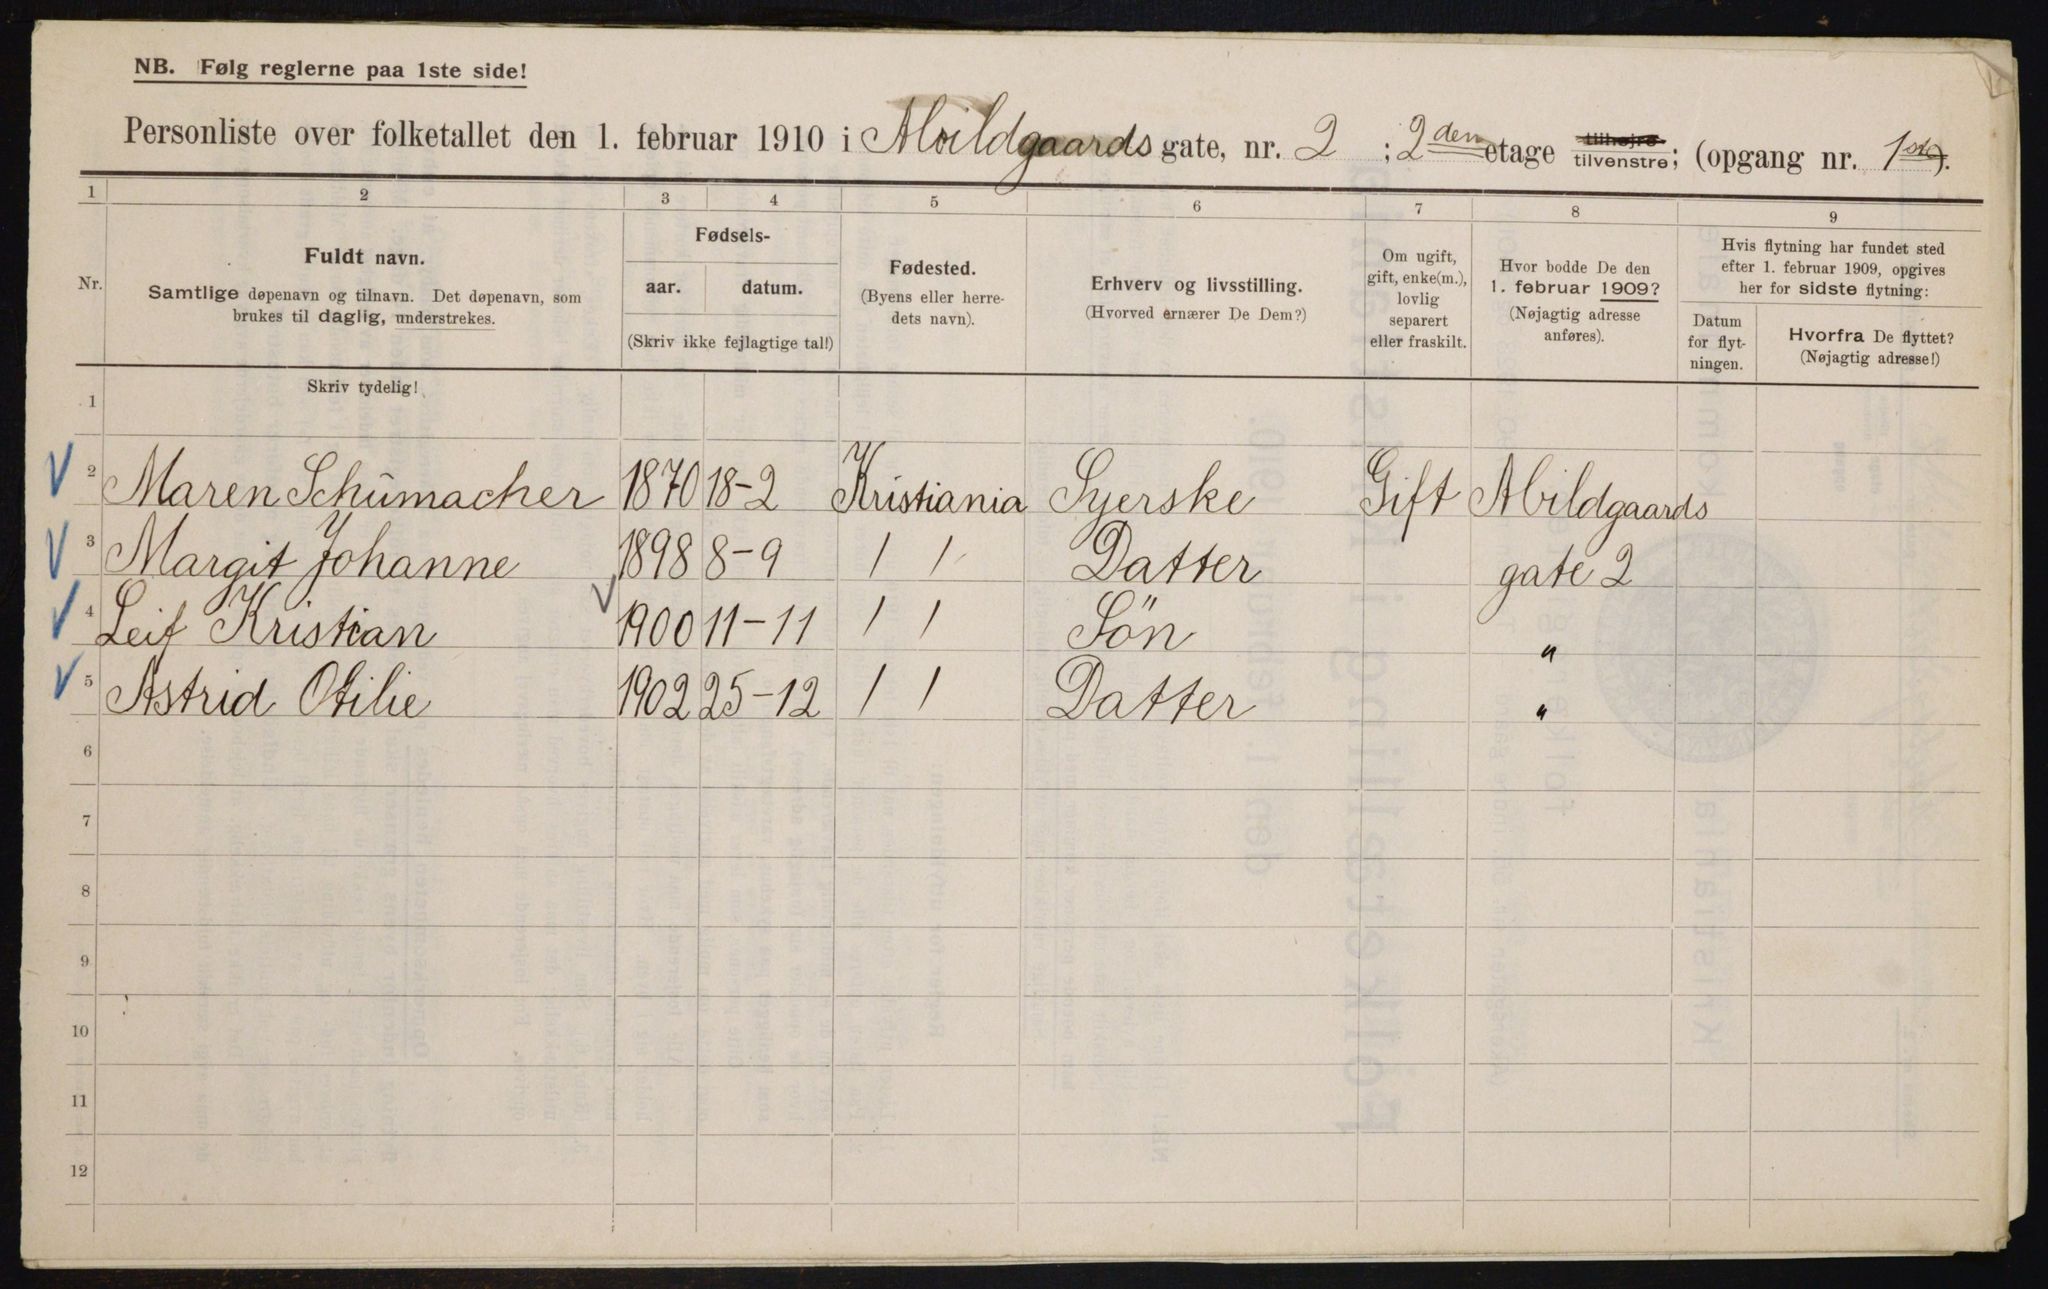 NB. Følg reglerne paa 1ste side!
Personliste over folketallet den 1. februar 1910 i Abildgaards gate, nr. 2 ; 2den etage tilhøjre tilvenstre; (opgang nr. 1ste).
1 2 3 4 5 6 7 8 9
Nr.
Fuldt navn.
Samtlige døpenavn og tilnavn. Det døpenavn, som
brukes til daglig, understrekes.
Fødsels-
aar. datum.
(Skriv ikke fejlagtige tal!)
Fødested.
(Byens eller herre-
dets navn).
Erhverv og livsstilling.
(Hvorved ernærer De Dem?)
Om ugift,
gift, enke(m.),
lovlig
separert
eller fraskilt.
Hvor bodde De den
1. februar 1909?
(Nøjagtig adresse
anføres).
Hvis flytning har fundet sted
efter 1. februar 1909, opgives
her for sidste flytning:
Datum
for flyt-
ningen.
Hvorfra De flyttet?
(Nøjagtig adresse!)
Skriv tydelig!
1
2 Maren Schümacher 1870 18-2 Kristiania Syerske Gift Abildgaards
3 Margit Johanne 1898 8-9 / / Datter gate 2
4 Leif Kristian 1900 11-11 / / Sön "
5 Astrid Otilie 1902 25-12 / / Datter "
6
7
8
9
10
11
12